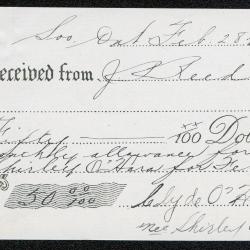 Soo Dak Feb 28
eceived from J L Reed
Fifty xx/100 Do
nthly allowance for
hirley O'Hara for Fe
$ 50 00/100 Clyde O'
nee Shirley